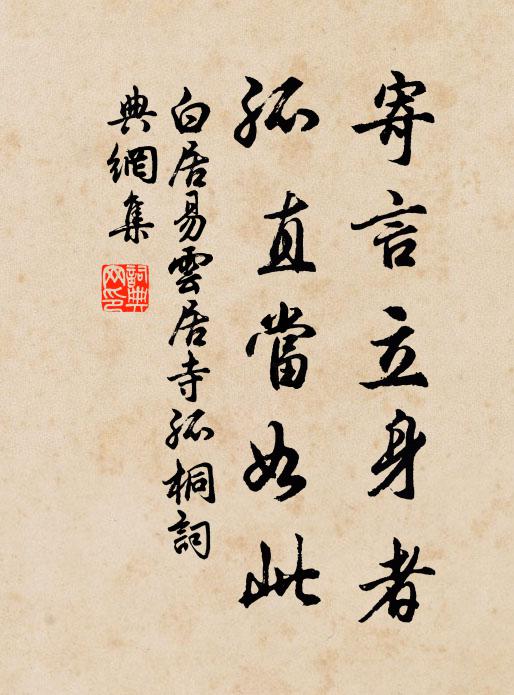 寄言立身者
孤直當如此
白居易雲居寺孤桐詞
典網集
詞典
网印